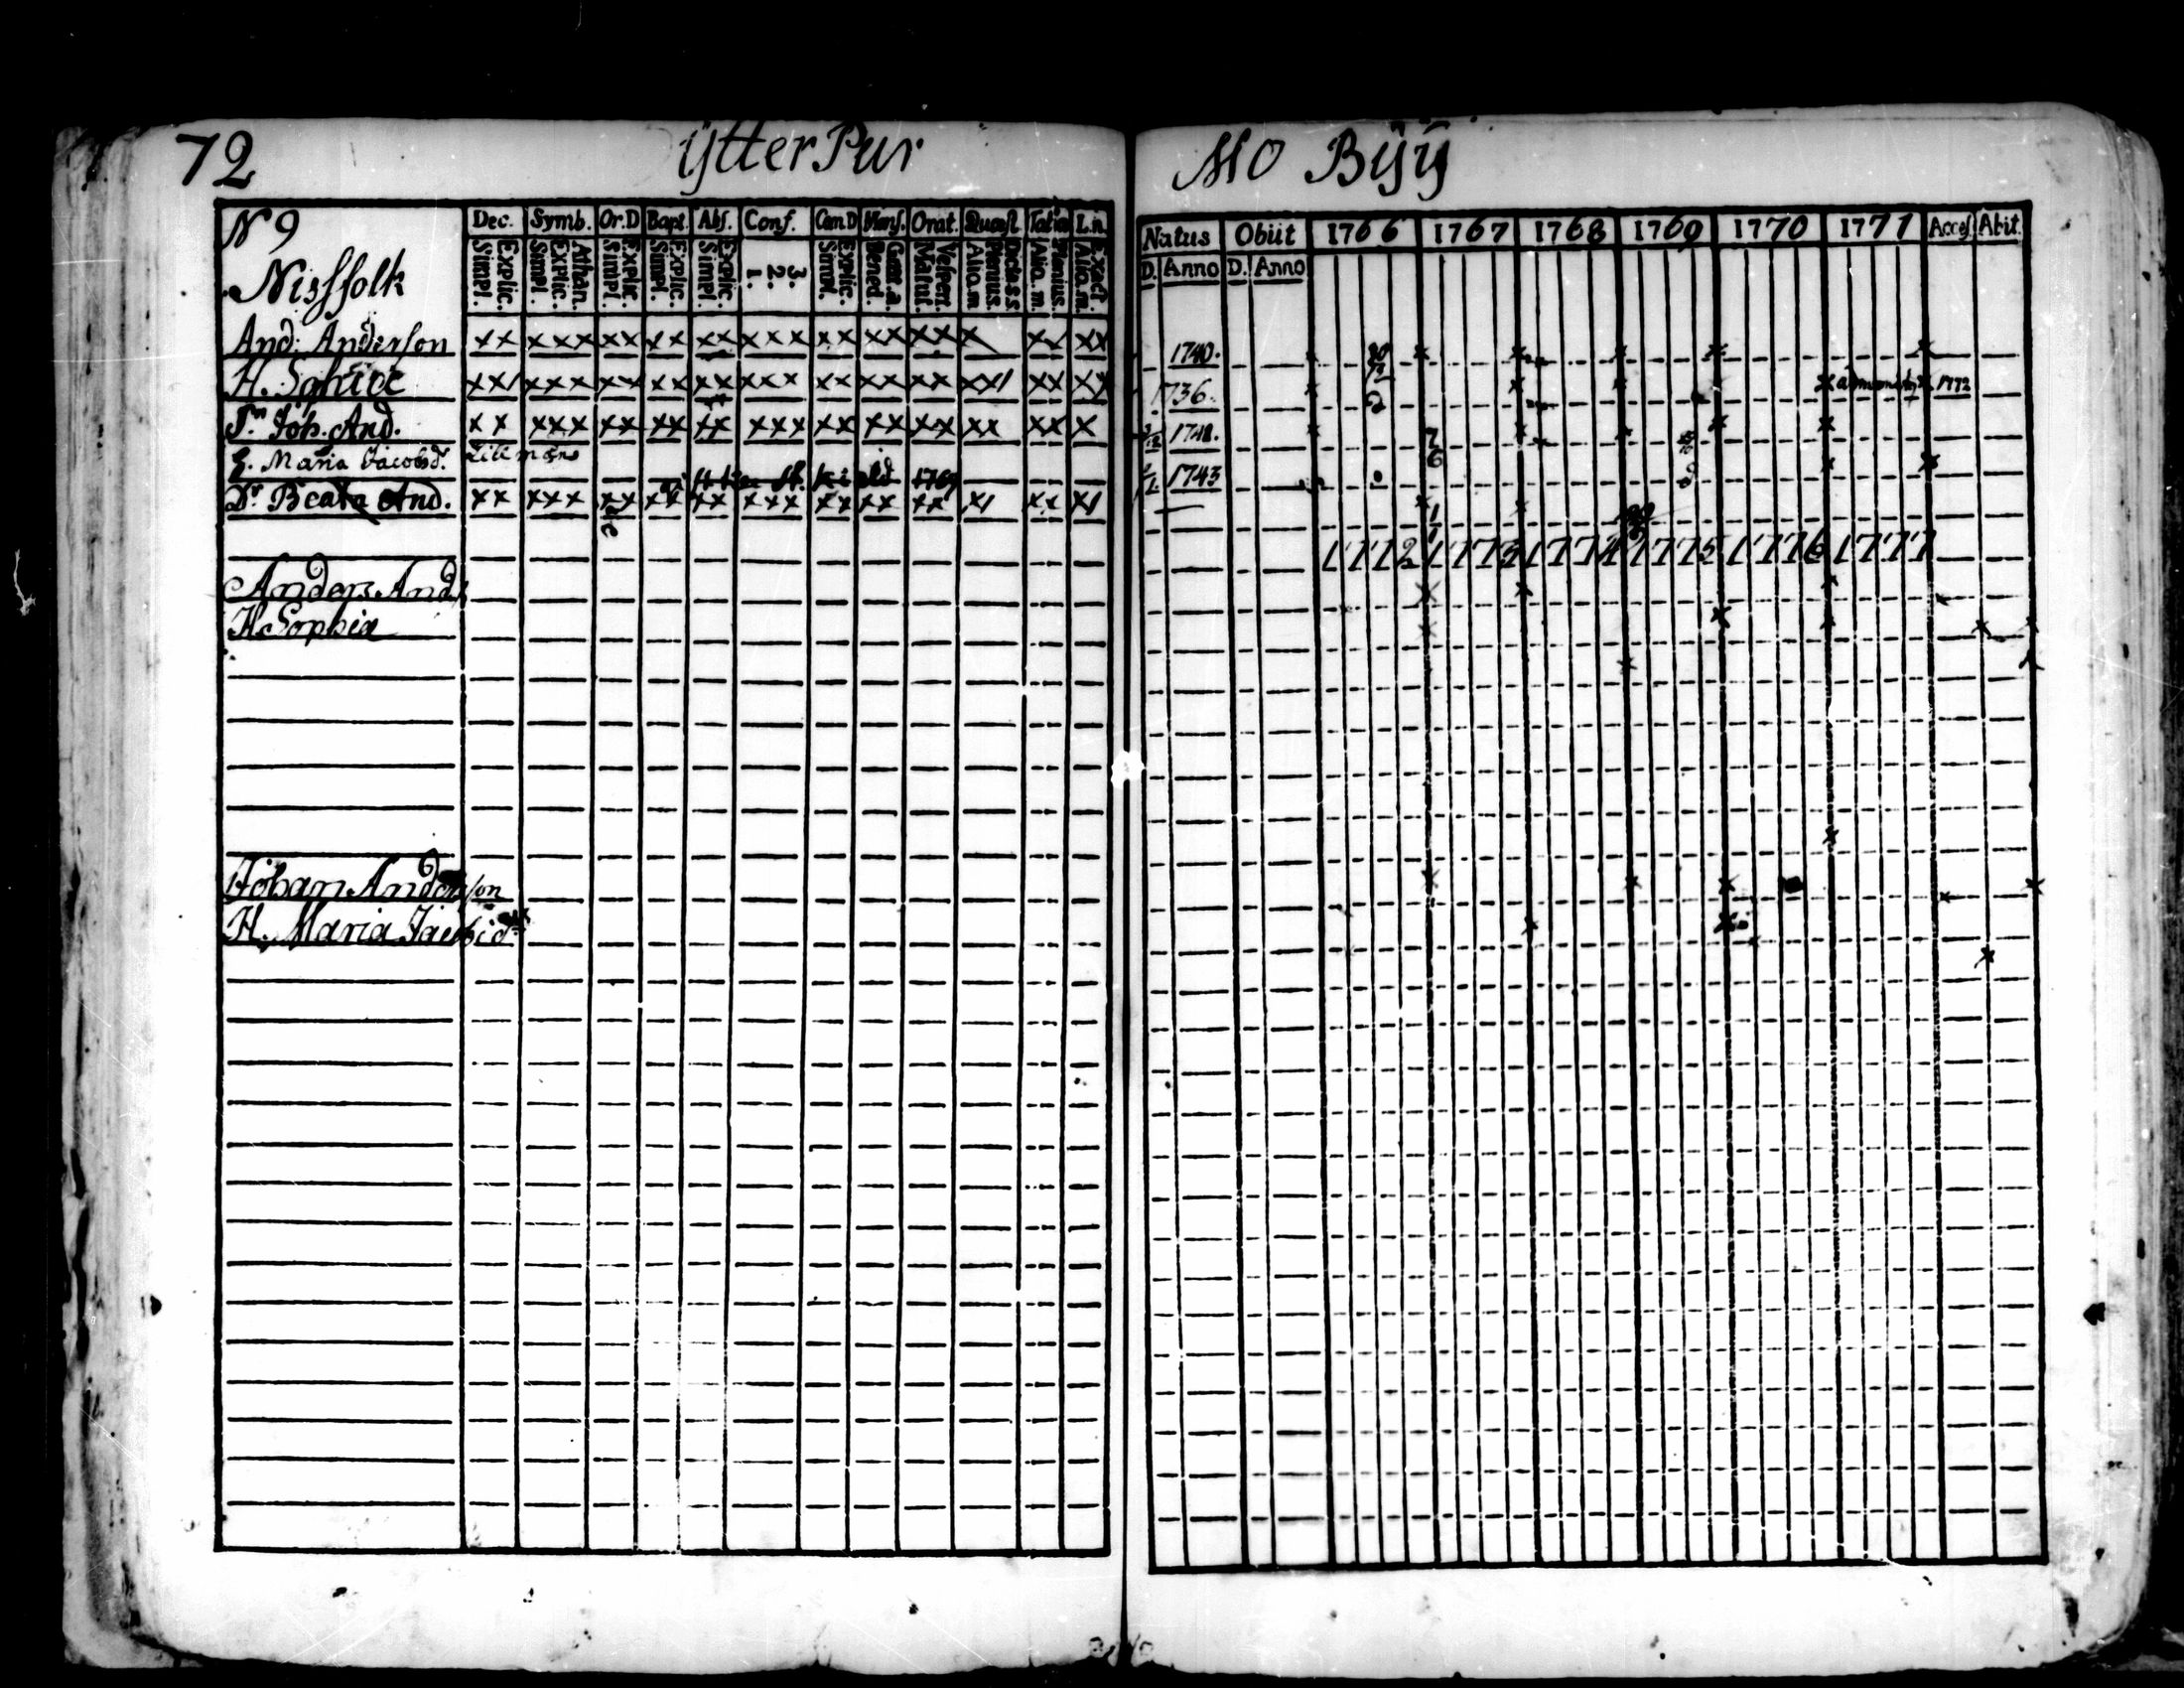 72 ÿtter Pur Mo Bÿÿ
N 9
Nissfolk
Dec. Symb. Or.D Bapt. Abs. Conf. Cœn.D Mens. Orat. Quæst L.n.
Explic. Simpl. Athan. Explic. Simpl. Explic. Simpl. Explic. Simpl. Explic. Simpl. 3. 2. 1. Explic. Simpl. Bened. Vespert. Matut. Plenius. Alio.m Plenius. Alio.m. Exact. Alio.m.
Natus Obiit 1766 1767 1768 1769 1770 1771 Access. Abit.
D. Anno D. Anno
And: Anderson xx xxx xx xx xx xxx xx xx xx x xx xx 1740.
H. xx xxx xx xx xx xxx xx xx xx xx xx xx 1736. 1772
Joh. And. xx xxx xx xx xx xxx xx xx xx xx xx x 1741.
Maria Jacobsd. 1769 1743
Dr. Beata And. xx xxx xx xx xx xxx xx xx xx xx x
1772 1773 1774 1775 1776 1777
Anders And.
H. Sophia
Johan Anderson
H. Maria